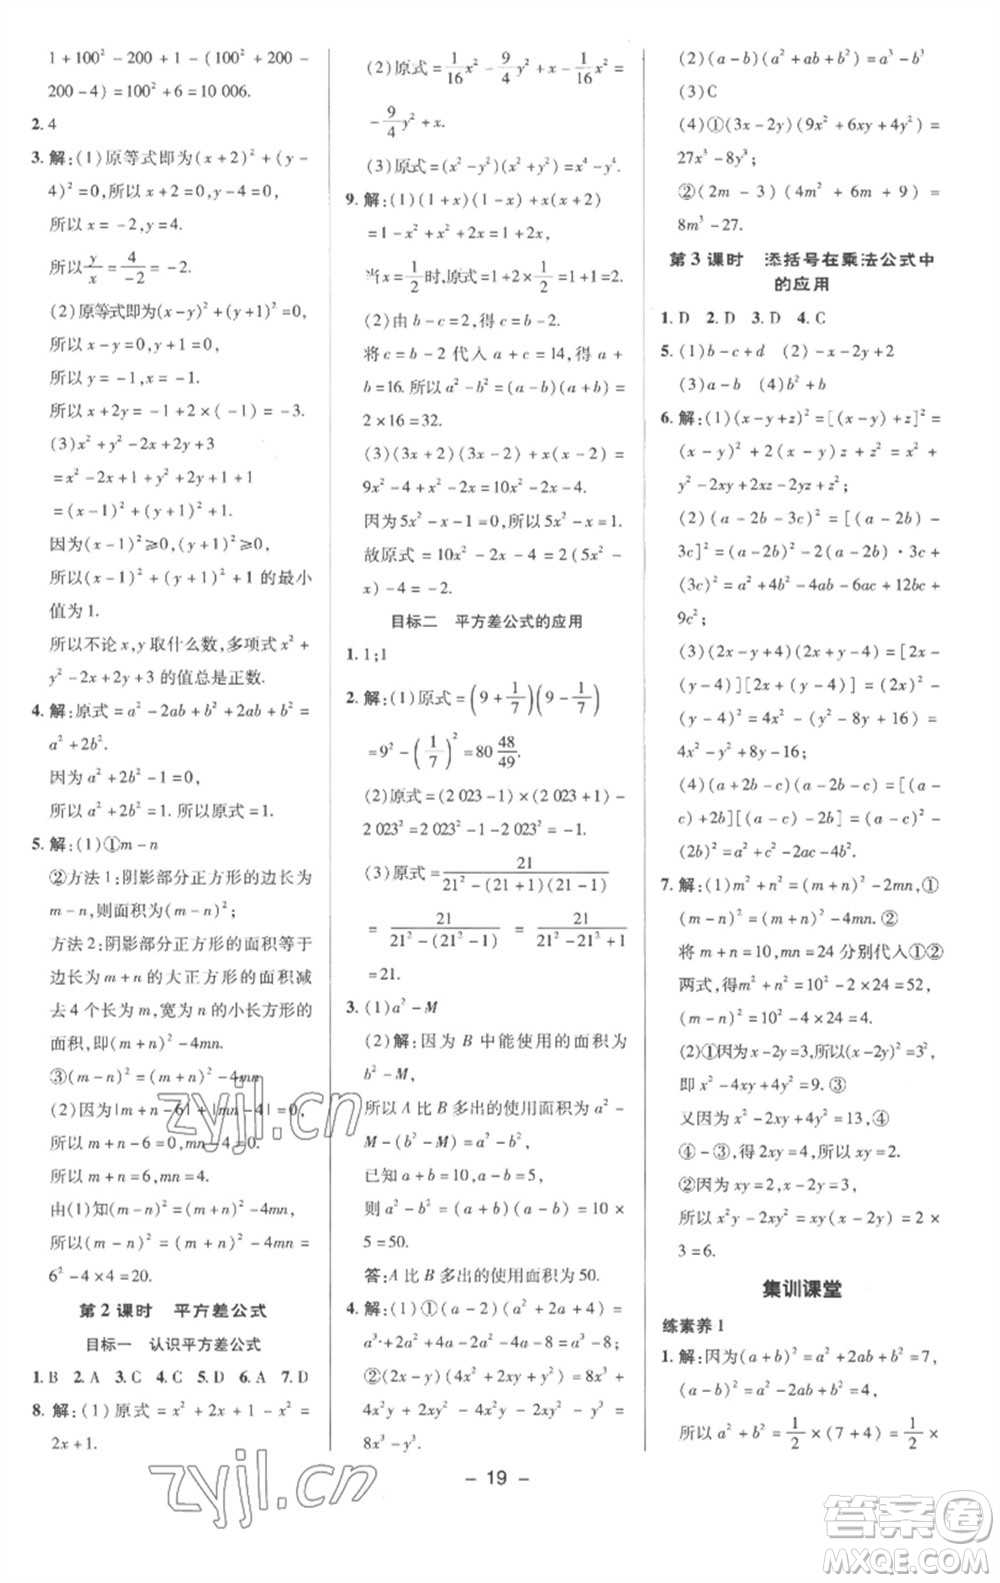 1+100²-200+1-(100²+200-
200-4)=100²+6=10 006.
2. 4
3. 解:(1)原等式即为(x+2)²+(y-
4)²=0,所以(x+2)²=0,(y-4)²=0.
所以x=-2,y=4.
所以y/x=4/-2=-2.
(2)原等式即为(x-y)²+(y+1)²=0.
所以x-y=0,y+1=0.
所以x=y=-1.
所以x+2y=-1+2×(-1)=-3.
(3)x²+y²-2x+2y+3
=x²-2x+1+y²+2y+1+1
=(x-1)²+(y+1)²+1.
因为(x-1)²≥0,(y+1)²≥0,
所以(x-1)²+(y+1)²+1的最小
值为1.
所以不论x,y取什么数,多项式x²+
y²-2x+2y+3的值总是正数.
4. 解:原式=a²-2ab+b²+2ab+b²=
a²+2b².
因为a²+2b²-1=0,
所以a²+2b²=1.所以原式=1.
5. 解:(1)①m-n
②方法1:阴影部分正方形的边长为
m-n,则面积为(m-n)²;
方法2:阴影部分正方形的面积等于
边长为m+n的大正方形的面积减
去4个长为m,宽为n的小长方形的
面积,即(m+n)²-4mn.
③(m-n)²=(m+n)²-4mn
(2)因为|m+n-6|+|mn-4|=0,
所以m+n-6=0,mn-4=0.
所以m+n=6,mn=4.
由(1)知(m-n)²=(m+n)²-4mn,
所以(m-n)²=(m+n)²-4mn=
6²-4×4=20.
第2课时 平方差公式
目标一 认识平方差公式
1. B 2. A 3. C 4. C 5. D 6. A 7. D
8. 解:(1)原式=x²+2x+1-x²=
2x+1.
(2)原式=1/16x²-9/4y²+x-1/16x²=
-9/4y²+x.
(3)原式=(x²-y²)(x²+y²)=x⁴-y⁴.
9. 解:(1)(1+x)(1-x)+x(x+2)
=1-x²+x²+2x=1+2x,
当x=1/2时,原式=1+2×1/2=1+1=2.
(2)由b-c=2,得c=b-2.
将c=b-2代入a+c=14,得a+
b=16.所以a²-b²=(a-b)(a+b)=
2×16=32.
(3)(3x+2)(3x-2)+x(x-2)=
9x²-4+x²-2x=10x²-2x-4.
因为5x²-x-1=0,所以5x²-x=1.
故原式=10x²-2x-4=2(5x²-
x)-4=-2.
目标二 平方差公式的应用
1. 1;1
2. 解:(1)原式=(9+1/7)(9-1/7)
=9²-(1/7)²=80 48/49.
(2)原式=(2 023-1)×(2 023+1)-
2 023²=2 023²-1-2 023²=-1.
(3)原式=21/21²-(21+1)(21-1)
=21/21²-(21²-1)=21/21²-21²+1
=21.
3. (1)a²-M
(2)解:因为B中能使用的面积为
b²-M,
所以A比B多出的使用面积为a²-
M-(b²-M)=a²-b².
已知a+b=10,a-b=5,
则a²-b²=(a+b)(a-b)=10×
5=50.
答:A比B多出的使用面积为50.
4. 解:(1)①(a-2)(a²+2a+4)=
a³+2a²+4a-2a²-4a-8=a³-8;
②(2x-y)(4x²+2xy+y²)=8x³+
4x²y+2xy²-4x²y-2xy²-y³=
8x³-y³.
(2)(a-b)(a²+ab+b²)=a³-b³
(3)C
(4)①(3x-2y)(9x²+6xy+4y²)=
27x³-8y³;
②(2m-3)(4m²+6m+9)=
8m³-27.
第3课时 添括号在乘法公式中
的应用
1. D 2. D 3. D 4. C
5. (1)b-c+d (2)-x-2y+2
(3)a-b (4)b²+b
6. 解:(1)(x-y+z)²=[(x-y)+z]²=
(x-y)²+2(x-y)z+z²=x²+
y²-2xy+2xz-2yz+z²;
(2)(a-2b-3c)²=[(a-2b)-
3c]²=(a-2b)²-2(a-2b)·3c+
(3c)²=a²+4b²-4ab-6ac+12bc+
9c²;
(3)(2x-y+4)(2x+y-4)=[2x-
(y-4)][2x+(y-4)]=(2x)²-
(y-4)²=4x²-(y²-8y+16)=
4x²-y²+8y-16;
(4)(a+2b-c)(a-2b-c)=[(a-
c)+2b][(a-c)-2b]=(a-c)²-
(2b)²=a²-2ac+c²-4b².
7. 解:(1)m²+n²=(m+n)²-2mn,①
(m-n)²=(m+n)²-4mn.②
将m+n=10,mn=24分别代入①②
两式,得m²+n²=10²-2×24=52,
(m-n)²=10²-4×24=4.
(2)①因为x-2y=3,所以(x-2y)²=9,
即x²-4xy+4y²=9.③
又因为x²-2xy+4y²=13,④
④-③,得2xy=4,所以xy=2.
②因为xy=2,x-2y=3,
所以x²y-2xy²=xy(x-2y)=2×
3=6.
集训课堂
练素养1
1. 解:因为(a+b)²=a²+2ab+b²=7,
(a-b)²=a²-2ab+b²=4,
所以a²+b²=1/2×(7+4)=1/2×
- 19 -
zyjl.cn
zyjl.cn
答案圈
MXQE.COM